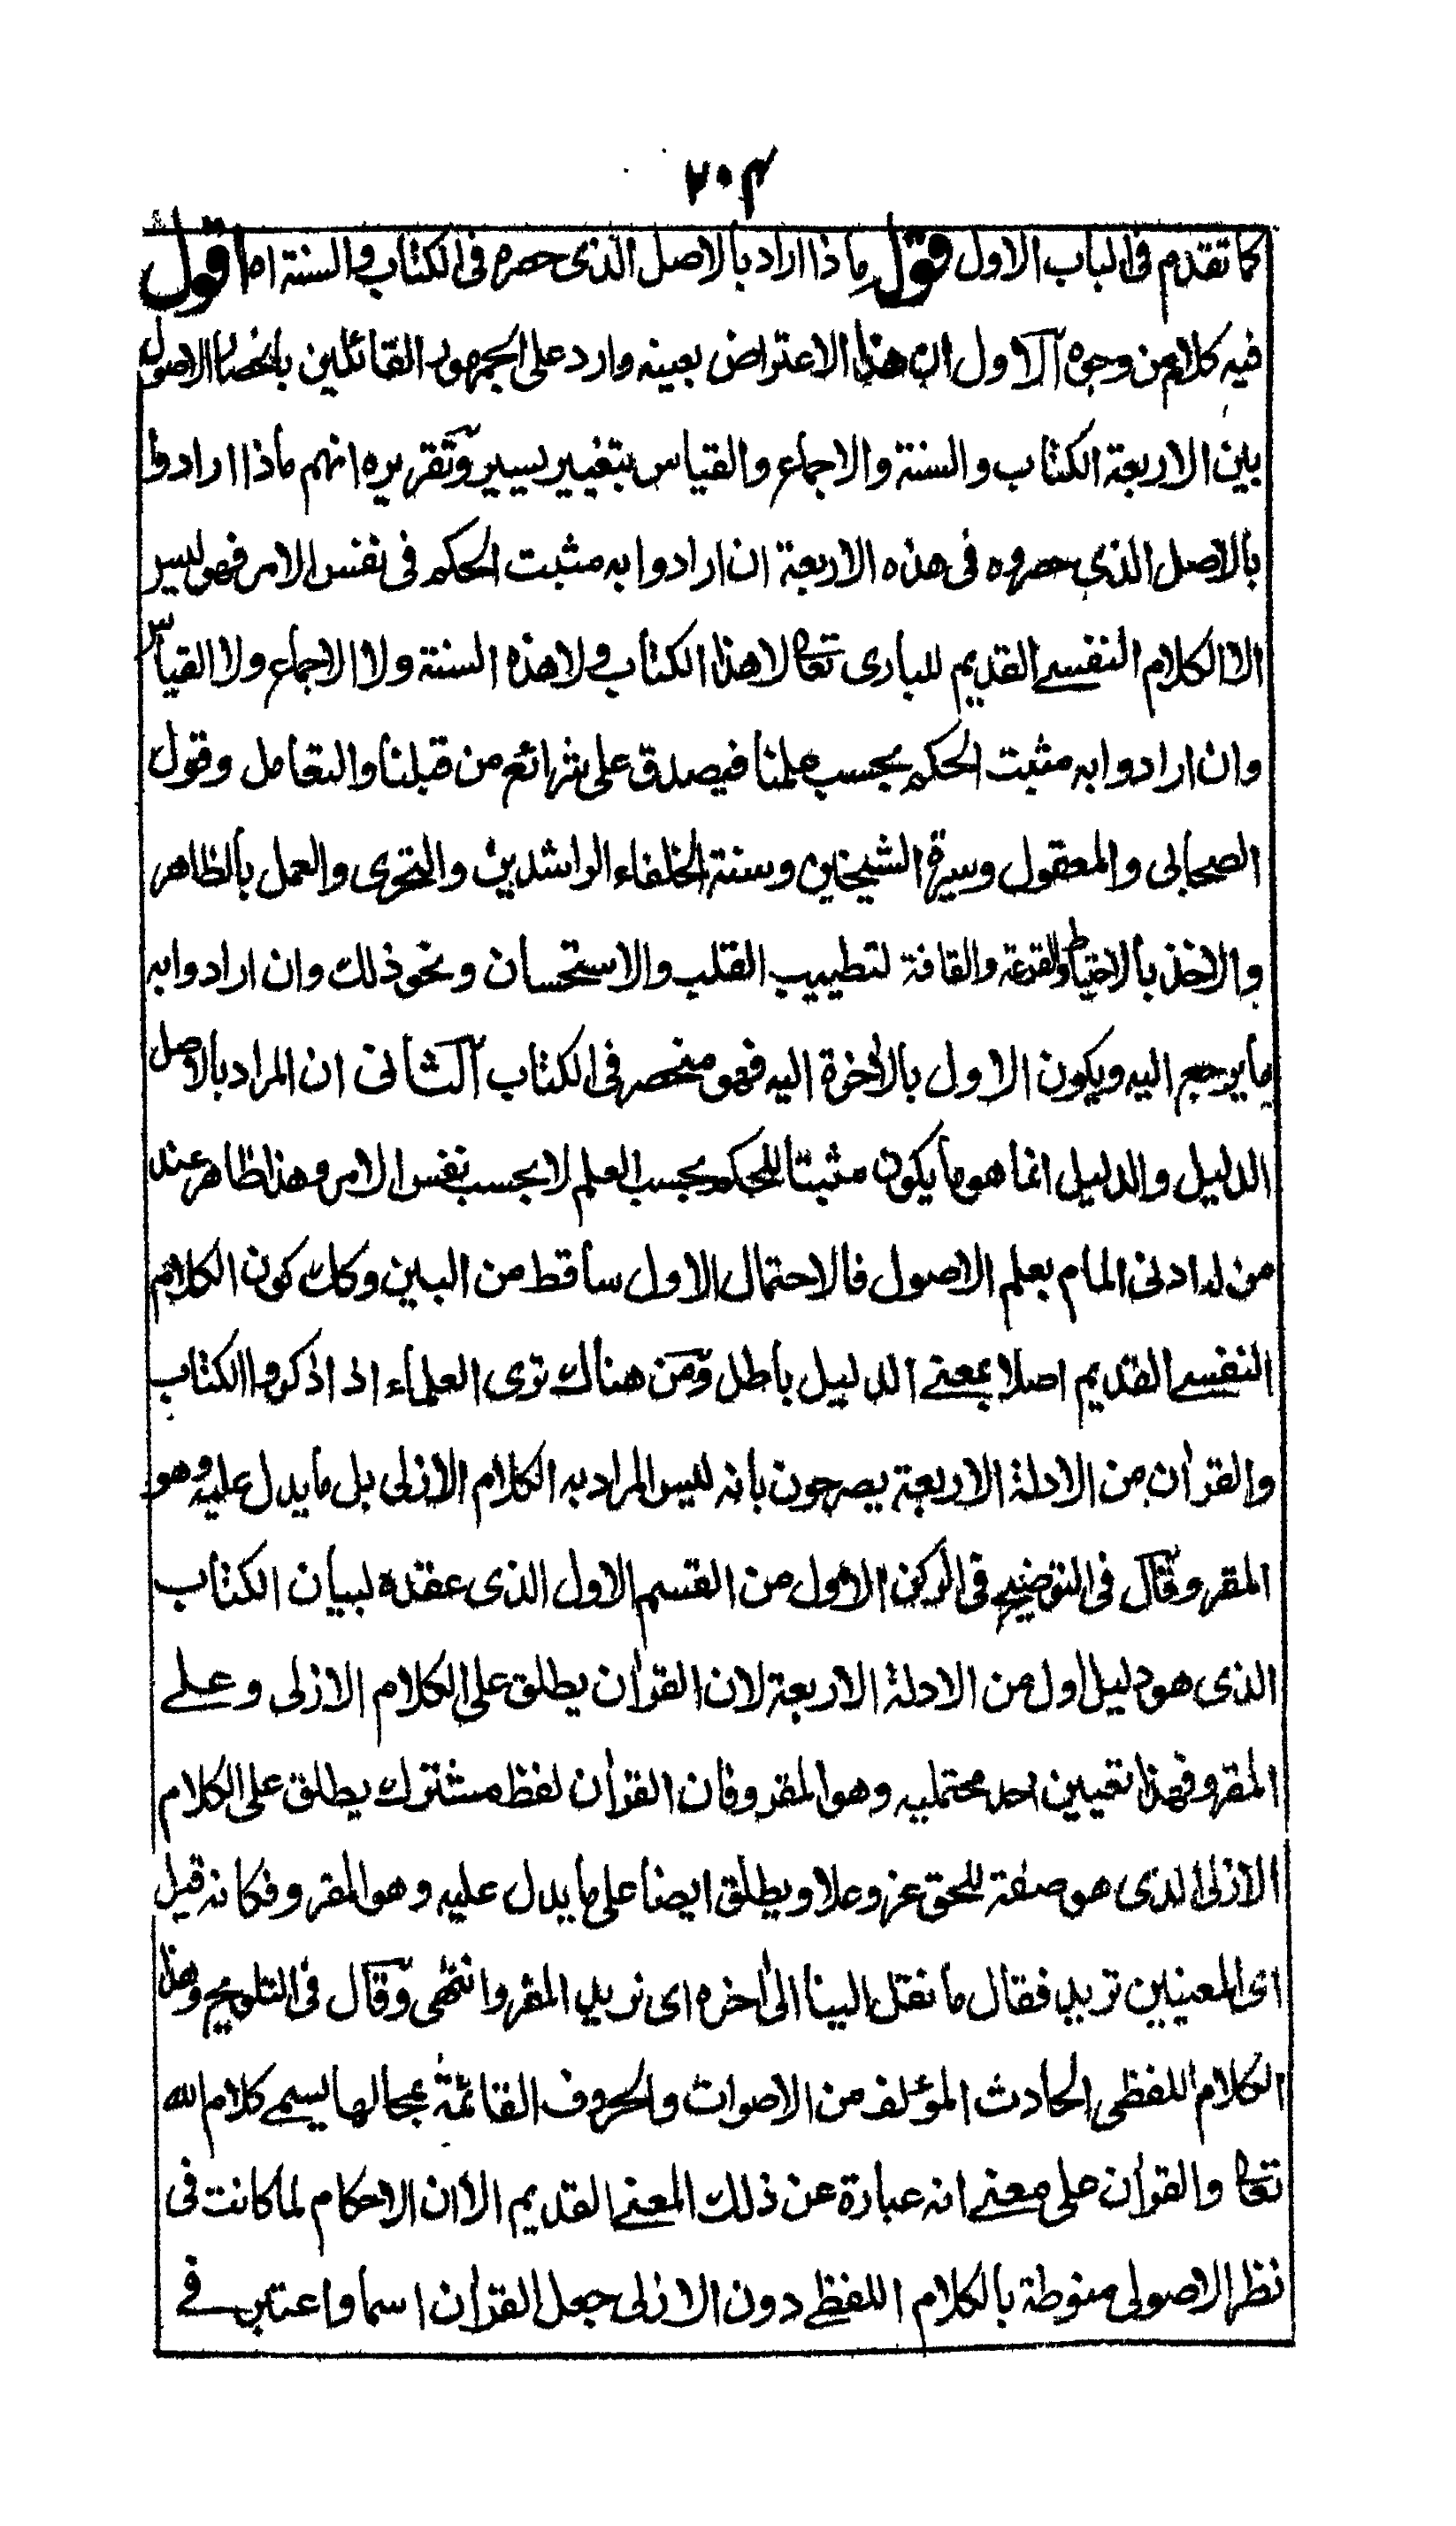 ٢٠٤
كما تقدم فى الباب الاول قوله ماذا اراد بالاصل الذى حصره فى الكتاب والسنة اه اقول
فيه كلام من وجوه الاول ان هذا الاعتراض بعينه وارد على الجمهور القائلين بانحصار الاصول
بين الاربعة الكتاب والسنة والاجماع والقياس بتغيير يسير وتقريره انهم ماذا ارادوا
بالاصل الذى حصروه فى هذه الاربعة ان ارادوا به مثبت الحكم فى نفس الامر فهو ليس
الا الكلام النفسے القديم للبارى تعا لا هذا الكتاب ولا هذه السنة ولا الاجماع ولا القياس
وان ارادوا به مثبت الحكم بحسب علمنا فيصدق على شرائع من قبلنا والتعامل وقول
الصحابى والمعقول وسيرة الشيخين وسنة الخلفاء الراشدين والتحرى والعمل بالظاهر
والاخذ بالاحتياط والقرعة والقافة لتطييب القلب والاستحسان ونحو ذلك وان ارادوا به
ما يرجع اليه ويكون الاول بالأخرة اليه فهو منحصر فى الكتاب الثانى ان المراد بالاصل
الدليل والدليل انما هو ما يكون مثبتا للحكم بحسب العلم لا بحسب نفس الامر وهذا ظاهر عند
من له ادنى المام بعلم الاصول فالاحتمال الاول ساقط من البين وكان كون الكلام
النفسے القديم اصلا بمعنے الدليل باطل ومن هناك ترى العلماء اذ اذكروا الكتاب
والقرأن من الادلة الاربعة يصرحون بانه ليس المراد به الكلام الازلى بل ما يدل عليه وهو
المقرو وقال فى التوضيح فى الركن الاول من القسم الاول الذى عقده لبيان الكتاب
الذى هو دليل اول من الادلة الاربعة لان القرأن يطلق على الكلام الازلى وعلے
المقرو فهذا تعيين احد محتمليه وهو المقرو فان القرأن لفظ مشترك يطلق على الكلام
الازلى الذى هو صفة للحق عز وعلا ويطلق ايضا على ما يدل عليه وهو المقرو فكانه قيل
اى المعنيين تريد فقال ما نقل الينا الى أخره اى نريد المقرو انتهى وقال فى التلويح وهذا
الكلام اللفظى الحادث المؤلف من الاصوات والحروف القائمة بمحالها يسمے كلام الله
تعا والقرأن على معنے انه عبارة عن ذلك المعنے القديم الا ان الاحكام لما كانت فى
نظر الاصولى منوطة بالكلام اللفظے دون الازلى جعل القرأن اسما واعتبر فے